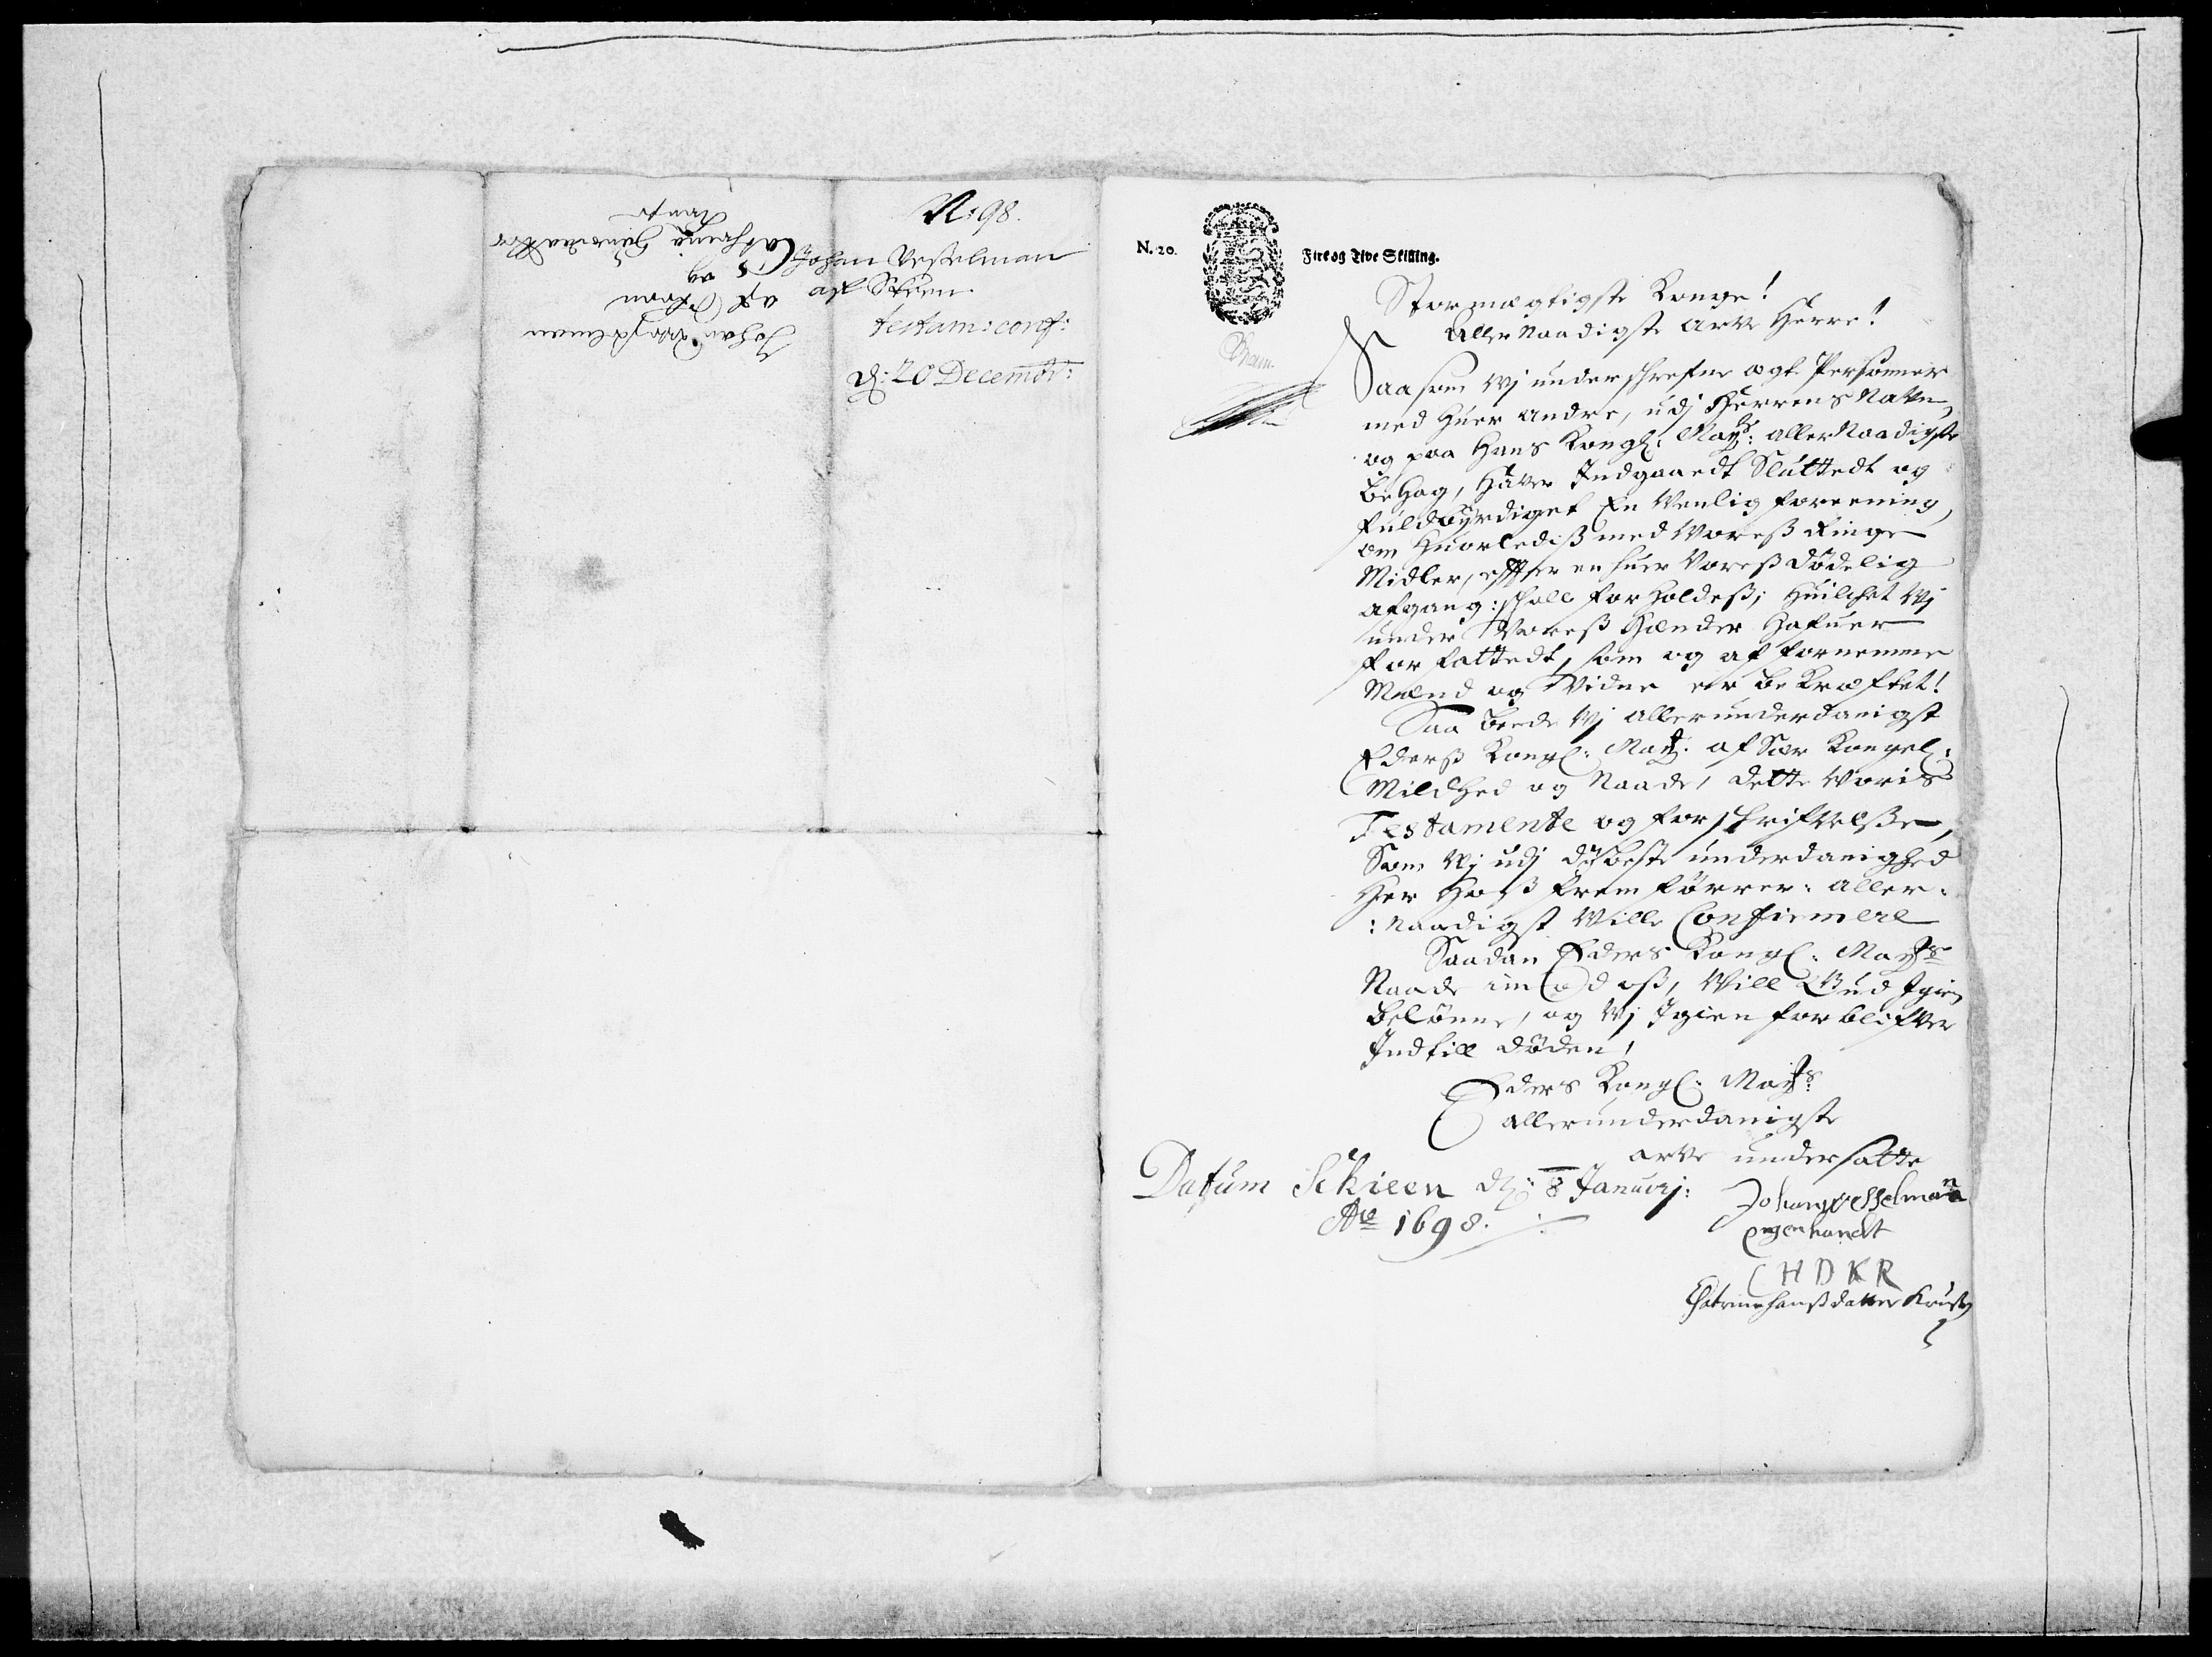 N: 98.
Johan Vesselman
aff Skeen.
testam: conf:
d: 20 Decembr:
Johan Wesselman
aff Skeen
og
Cathrina Hansdaatter
N. 20.
Fire og Tive Skilling.
Stormægtigste Konge!
Aller Naadigste Arve Herre!
Saasom Wj underschrefne egte Personner
med huer andre, udj Herrens Nafn,
og paa Hans Kongl: Mayts: Aller Naadigste
behag, hafver Indgaaedt Sluttedt og
fuldbyrdiget En Venlig foreening,
om huorledis med Woreß Ringe
Midler, effter en huer Voreß dødelig
afgang: schall forholdeß; huilchet Wj
under Voreß Hænder hafuer
forfattedt, som og af fornemme
Mænd og Vidne er bekræftet!
Saa beede Wj allerunderdanigst
Ederß Kongl: Mayt: af Sær Kongel:
Mildhed og Naade, dette Woris
Testamente og forschrifvelße,
Som Wj udj dybeste underdanighed
her hoß fremfører: Aller:
:Naadigst Wille Confirmere
Saadan Eders Kongl: Mayts
Naade imod oß, Will Gud Igien
belønne, og Wj Igien forblifver
Indtill døden,
Eders Kongl: Mayts:
allerunderdanigste
arve undersatte
Datum Schieen d: 8 Januarj:
Ao 1698.
Johan Wesselmann
Egenhandt
C H D K R
Chatrine Hanßdatter Kruse